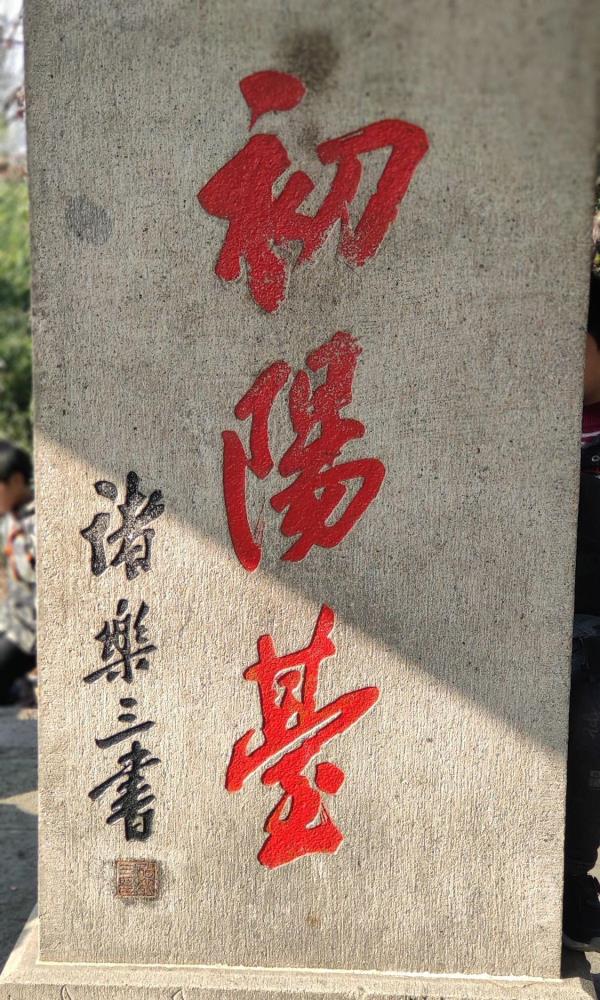 初陽臺
諸樂三書